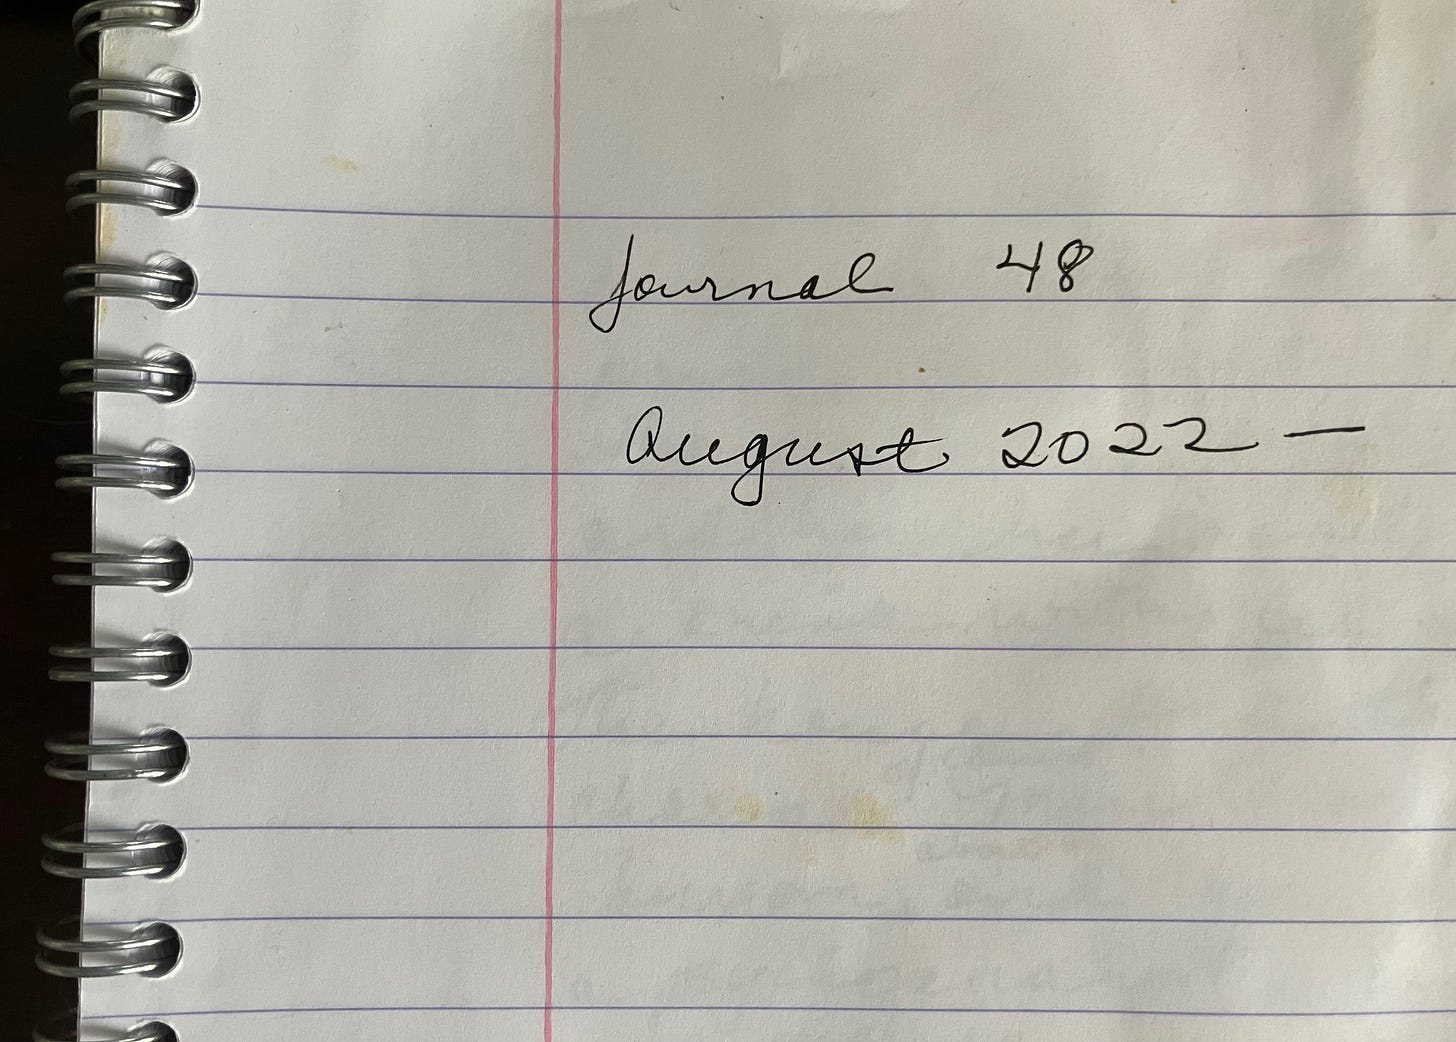 Journal 48
August 2022 —